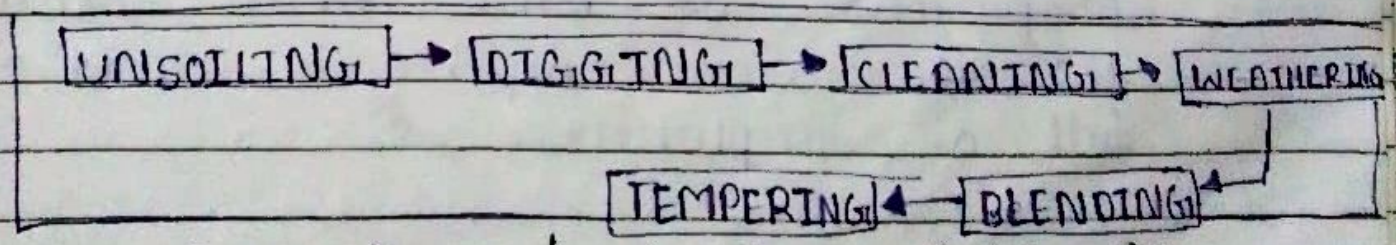 UNSOILING DIGGING CLEANING WEATHERING
TEMPERING BLENDING